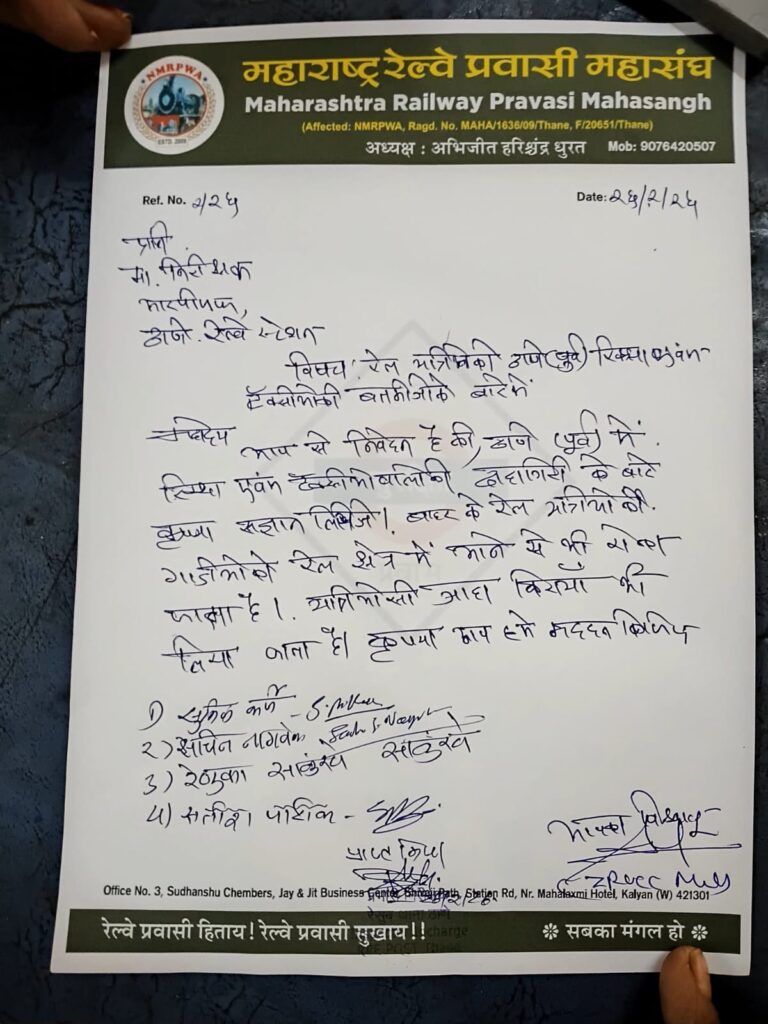 NMRPWA
ESTD. 2009
महाराष्ट्र रेल्वे प्रवासी महासंघ
Maharashtra Railway Pravasi Mahasangh
(Affected: NMRPWA, Ragd. No. MAHA/1636/09/Thane, F/20651/Thane)
अध्यक्ष : अभिजीत हरिश्चंद्र धुरत Mob: 9076420507
Ref. No. २/२६ Date: २६/२/२६
प्रति
मा. निरीक्षक
आरपीएफ,
ठाणे रेल्वे स्टेशन
विषय रेल यात्रियोको ठाणे (पुर्व) रिक्सा एवंम
टॅक्सीओकी बतमीजीके बारेमें
महोदय
आप से निवेदन है की, ठाणे (पूर्व) में
रिक्षा एवंम टॅक्सीओवालोकी दादागिरी के बारे
कृप्या संज्ञान लिजिए। बाहर के रेल यात्रीयोकी
गाडीओको रेल क्षेत्र में आने से भी रोका
जाता है। यात्रिओसे जादा किराया भी
लिया जाता है। कृपया आप हमे मद्दत किजिए
1)
2) सचिन नागवेकर
3) रेणुका साळुंखे साळुंखे
4) सतीश
प्राप्त किया
ZRUCC
Office No. 3, Sudhanshu Chembers, Jay & Jit Business Center, Bhiwpji Path, Station Rd, Nr. Mahalaxmi Hotel, Kalyan (W) 421301
रेल्वे प्रवासी हिताय! रेल्वे प्रवासी सुखाय!! ❊ सबका मंगल हो ❊